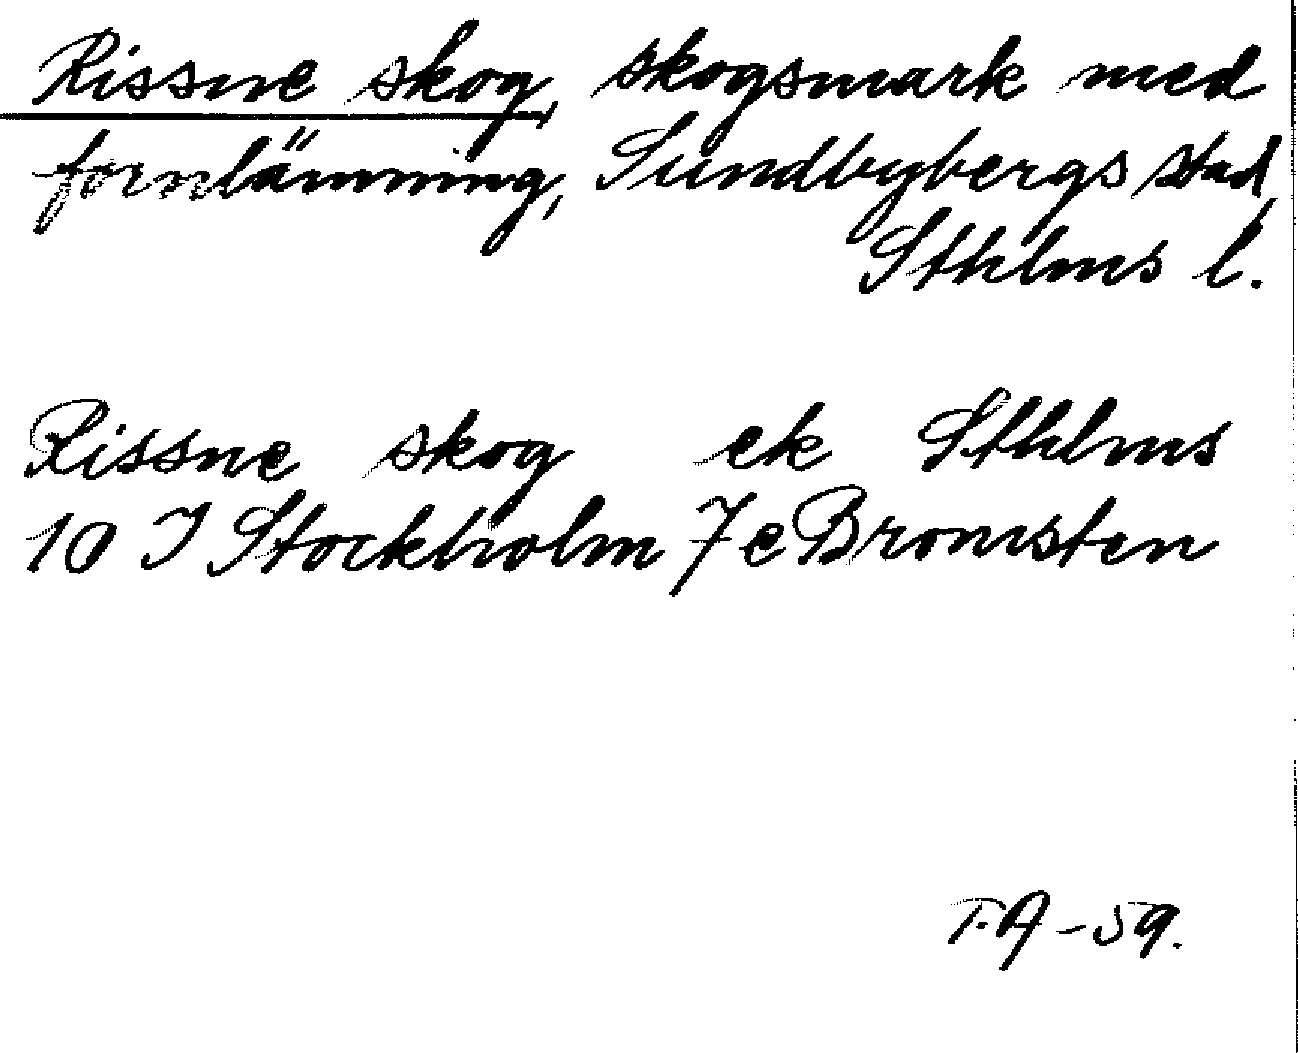 Rissne skog, skogsmark med
fornlämning, Sundbybergs stad,
Sthlms l.
Rissne skog ek Sthlms
10 I Stockholm 7 e Bromsten
T.A -59.